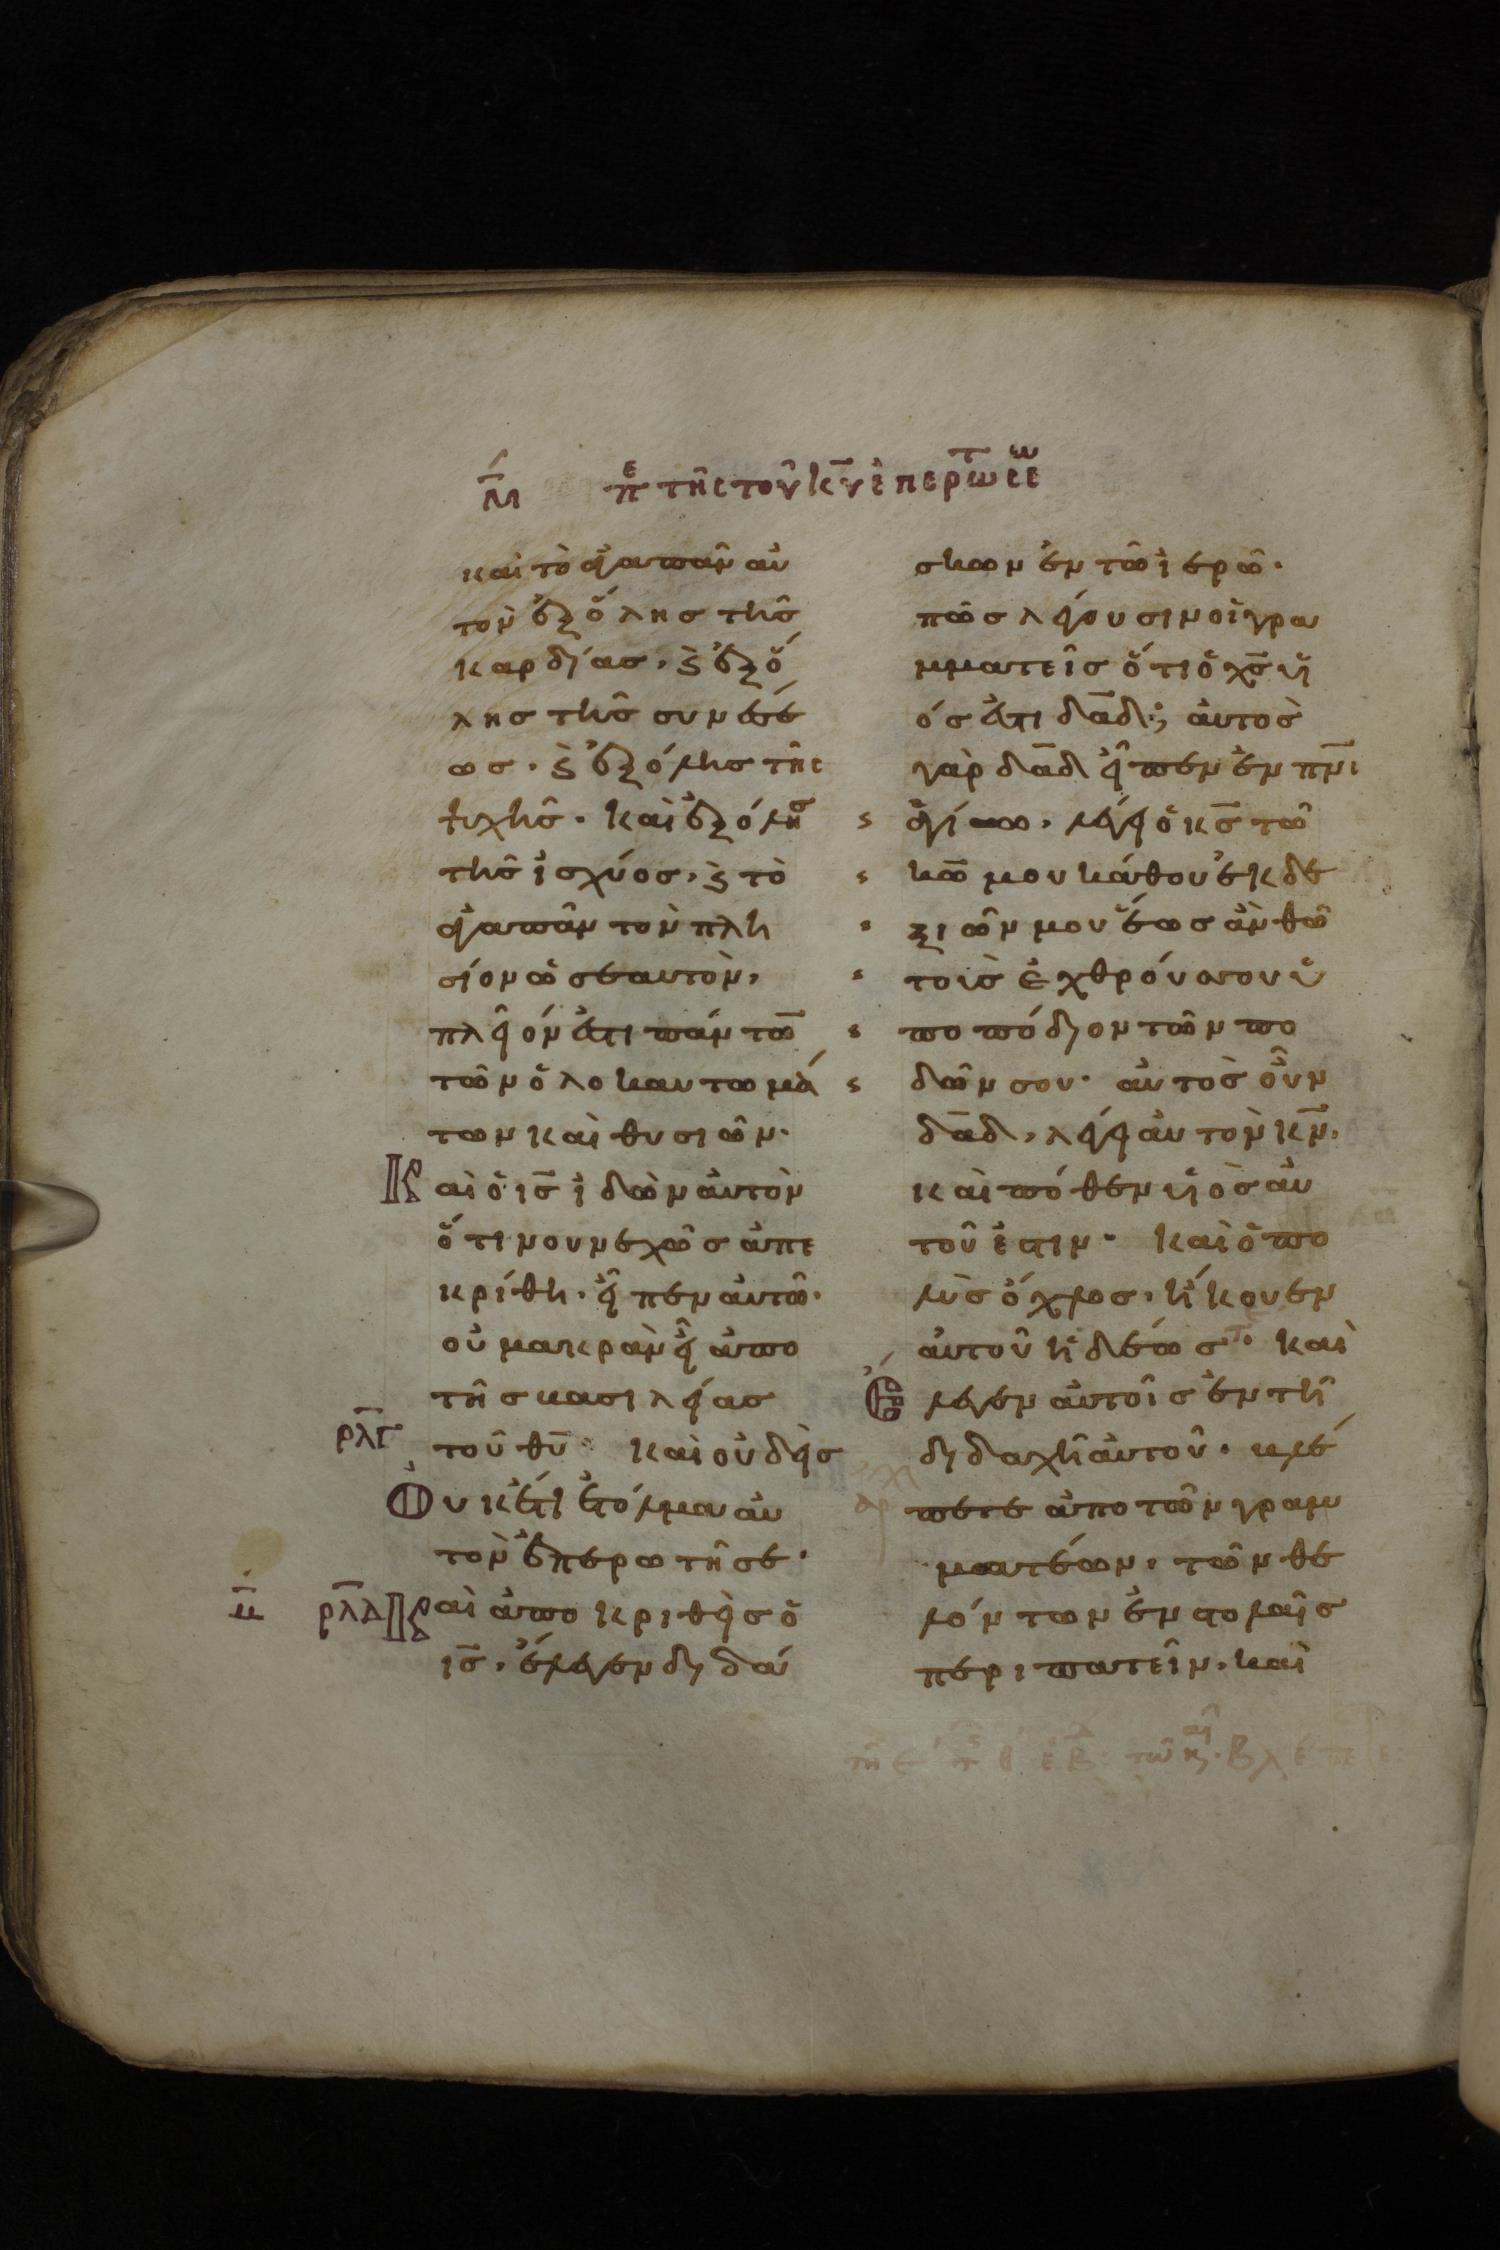 μ̅ πε τῆς τοῦ κ̅υ̅ ἐπερωτ ε̅ε̅ω
καὶ τὸ ἀγαπᾶν αὐ
τὸν ἐξ ὅλησ τῆσ
καρδίασ, ϗ ἐξ ὅ
λησ τῆσ συνέσε
ωσ· ϗ ἐξ ὅλησ τῆς
ψυχῆσ· καὶ ἐξ ὅλησ
τῆσ ἰσχύοσ, ϗ τὸ
ἀγαπᾶν τὸν πλη
σίον ὡσ σεαυτὸν,
πλεῖόν ἐστι πάντω̅
τῶν ὁλοκαυτωμά
των καὶ θυσιῶν·
Καὶ ὁ ι̅σ̅ ἰδὼν αὐτὸν
ὅτι νουνεχῶσ ἀπε
κρίθη, εἶπεν αὐτῶ·
οὐ μακρὰν εἶ ἀπο
τῆσ βασιλείασ
ρ̅λ̅γ̅ τοῦ θ̅υ̅· καὶ οὐδεὶσ
Οὐκέτι ἐτόλμα αὐ
τὸν ἐπερωτῆσε·
μ̅ ρ̅λ̅δ̅ Καὶ ἀποκριθεὶσ ὁ
ι̅σ̅, ἔλεγεν διδά
σκων ἐν τῶ ἱερῶ·
πῶσ λέγουσιν οἱ γρα
μματεῖσ ὅτι ὁ χ̅σ̅ ὑϊ
όσ ἐστι δα̅δ̅; αὐτοσ
γὰρ δα̅δ̅ εἶπεν ἐν π̅ν̅ι
ἁγίω, λέγει ὁ κ̅σ̅ τῶ
κ̅ω̅ μου κάθου ἐκ δε
ξιῶν μου ἕωσ ἂν θῶ
τοὺσ ἐχθρούσ σου ὑ
ποπόδιον τῶν πο
δῶν σου· αὐτὸσ οὖν
δα̅δ̅, λέγει αὐτὸν κ̅ν̅,
καὶ πόθεν ὑϊὸσ αὐ
τοῦ ἐστιν· καὶ ὁ πο
λὺσ ὄχλοσ, ἤκουεν
αὐτοῦ ἡδέωσ· καὶ
Ἔλεγεν αὐτοῖσ ἐν τῆ
διδαχῆ αὐτοῦ· βλέ
πετε ἀπο τῶν γραμ
ματέων, τῶν θε
λόντων ἐν στολαῖσ
περιπατεῖν, καὶ